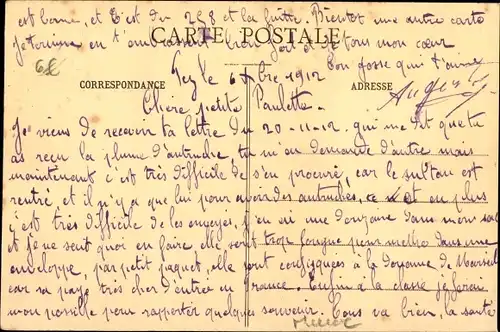 est bonne, et l'Est du 258 et la fuitte. Bientot une autre carte
je termine en t'embrassant bien fort et de tous mon cœur
CARTE POSTALE
Ton gosse qui t'aime
Fez le 6 Xbre 1912
CORRESPONDANCE
ADRESSE
Chère petite Paulette.
Je viens de recevoir ta lettre du 20-11-12. qui me dit que tu
as reçu la plume d'autruche, tu m'en demande d'autre mais
maintenant c'est très difficile de s'en procuré, car le sultan est
rentré, et il n'y a que lui pour avoir des autruches, et en plus
c'est très difficile de les envoyer, j'en ai une douzaine dans mon sac
et je ne sait quoi en faire elle sont trop longue pour mettre dans une
enveloppe, par petit paquet, elle sont confisquées à la douane de Marseil
car sa paye très cher d'entrée en France. Enfin à la classe je ferai
mon possible pour rapporter quelques souvenir. Tous va bien, la santé